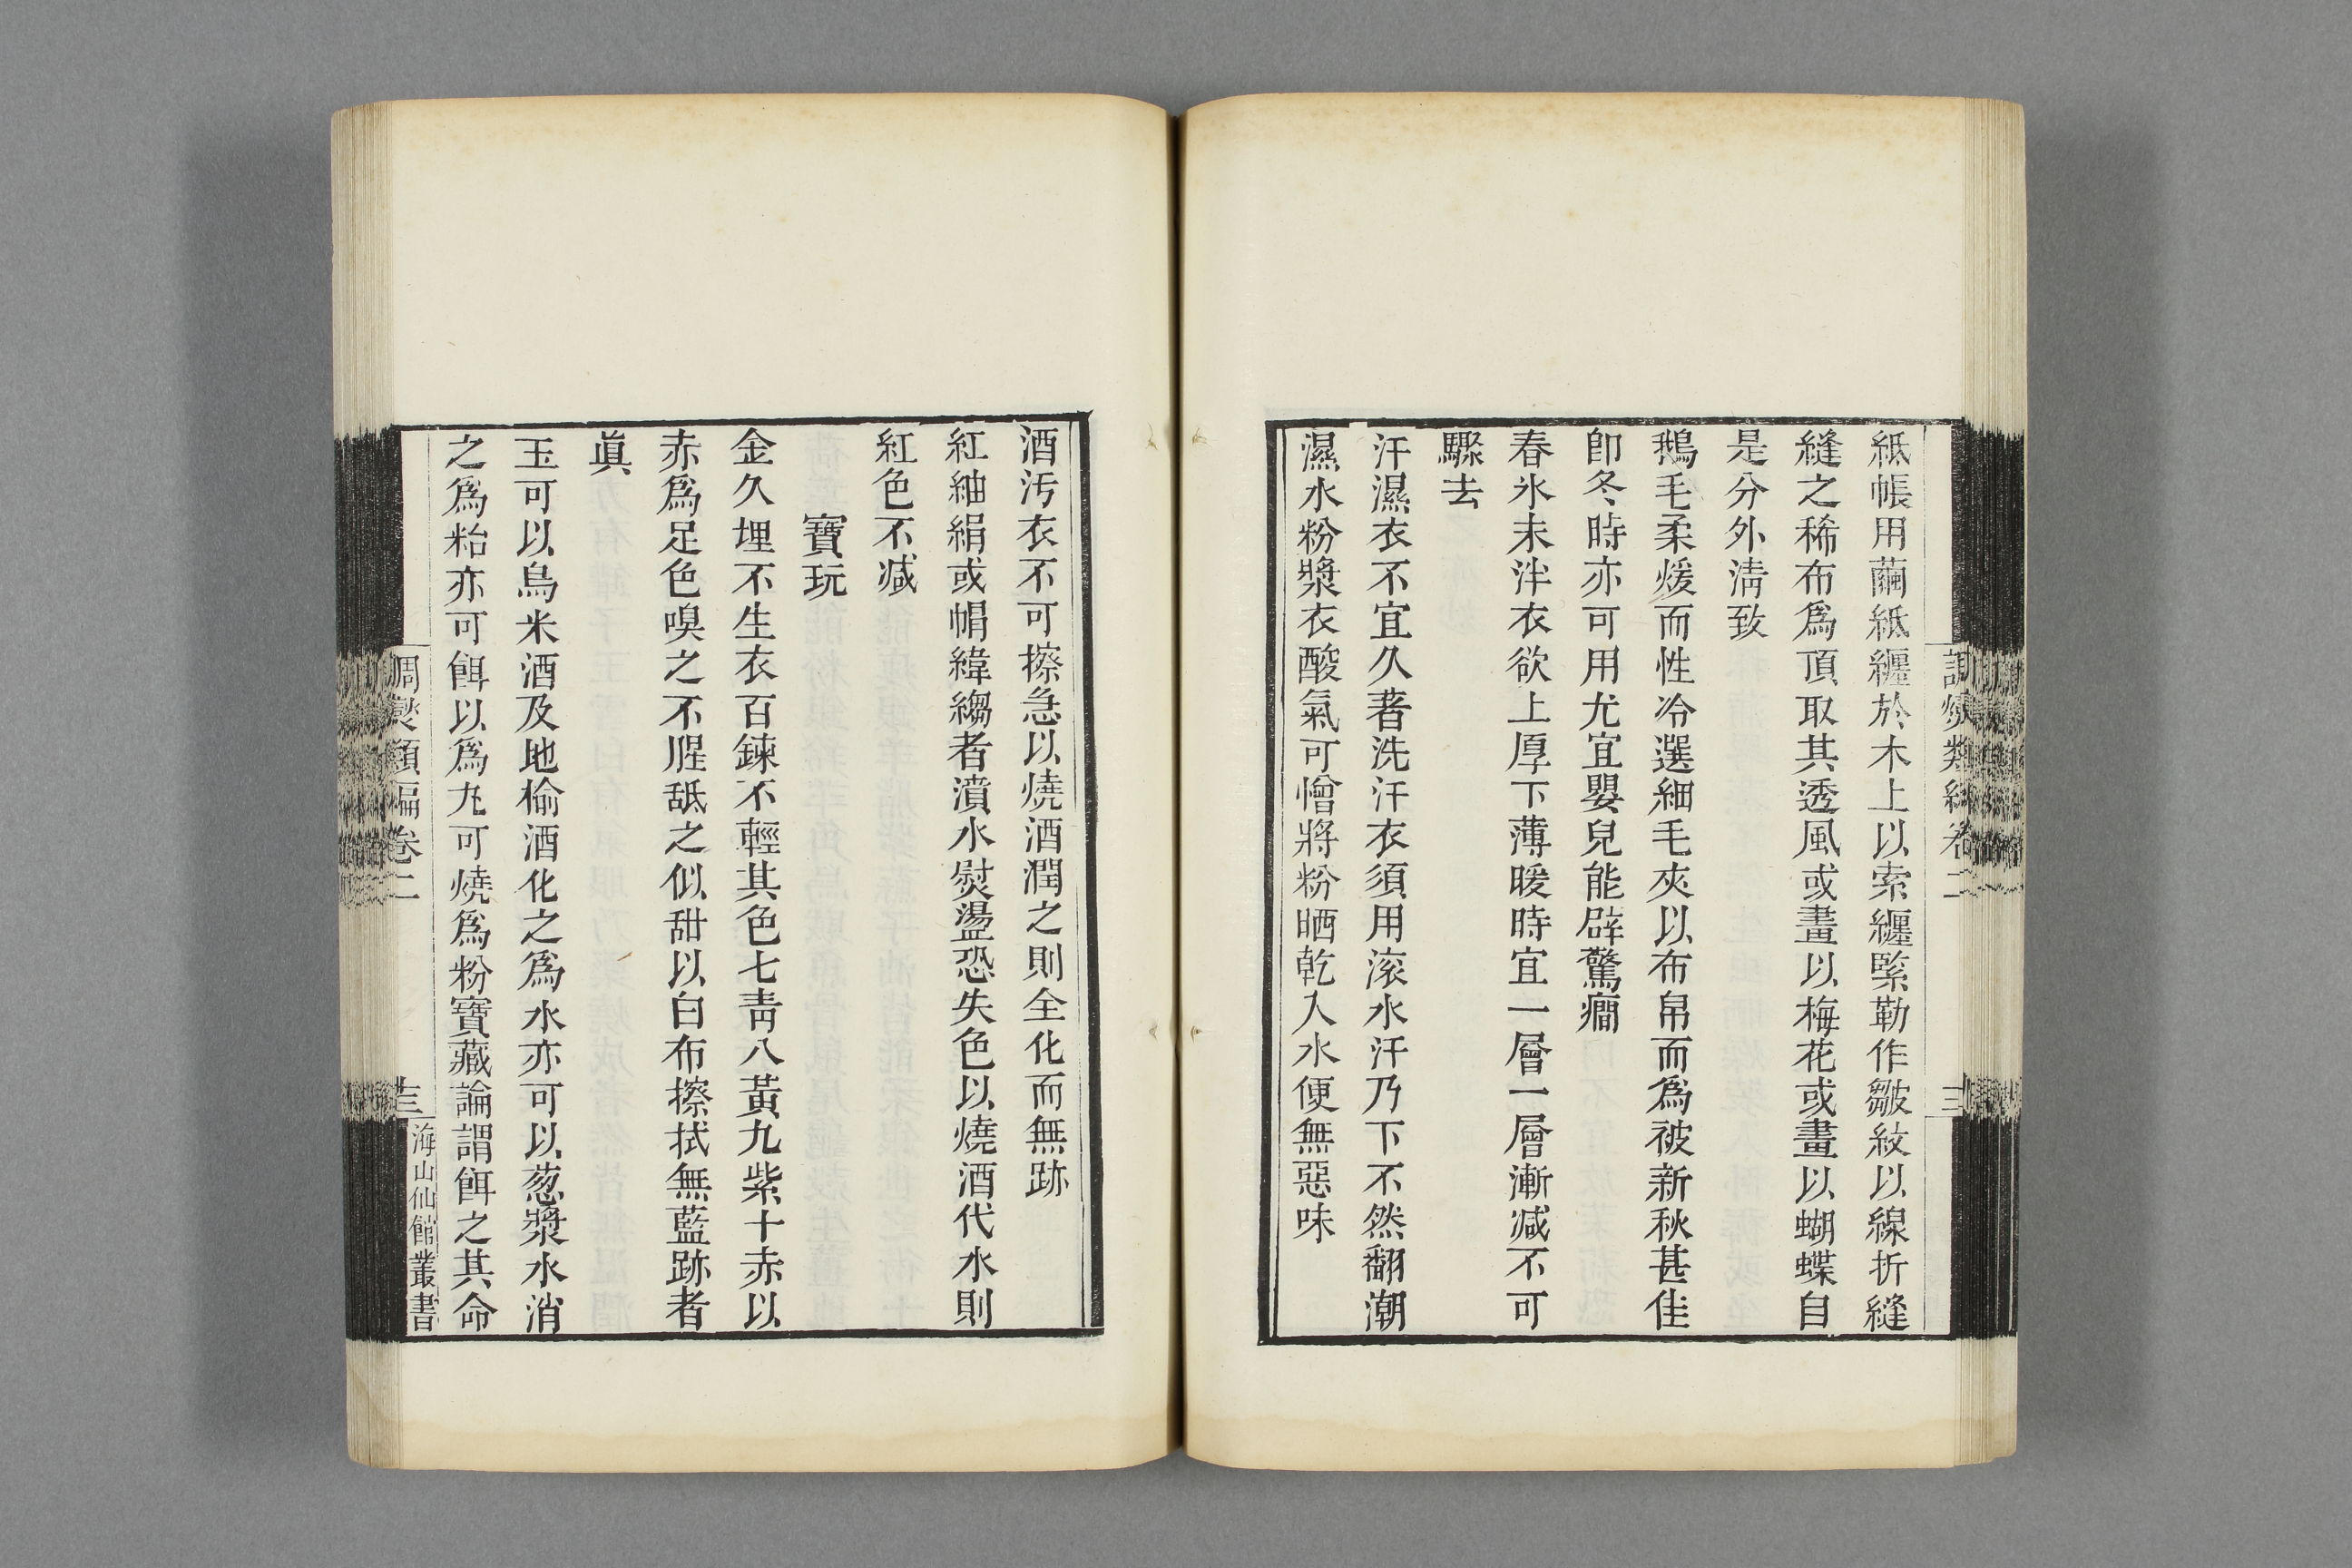 紙帳用繭紙纏於木上以索纏緊勒作皺紋以線折縫
縫之稀布爲頂取其透風或畫以梅花或畫以蝴蝶自
是分外淸致
鵝毛柔煖而性冷選細毛夾以布帛而爲被新秋甚佳
卽冬時亦可用尤宜嬰兒能辟驚癇
春氷未泮衣欲上厚下薄暖時宜一層一層漸减不可
驟去
汗濕衣不宜久著洗汗衣須用滚水汗乃下不然翻潮
濕水粉漿衣酸氣可憎將粉晒乾入水便無惡味
酒汚衣不可擦急以燒酒潤之則全化而無跡
紅紬絹或帽緯縐者濆水熨盪恐失色以燒酒代水則
紅色不减
寶玩
金久埋不生衣百鍊不輕其色七靑八黃九紫十赤以
赤爲足色嗅之不腥舐之似甜以白布擦拭無藍跡者
眞
玉可以烏米酒及地榆酒化之爲水亦可以葱漿水消
之爲粘亦可餌以爲丸可燒爲粉寶藏論謂餌之其命
調燮類編卷二
海山仙館叢書